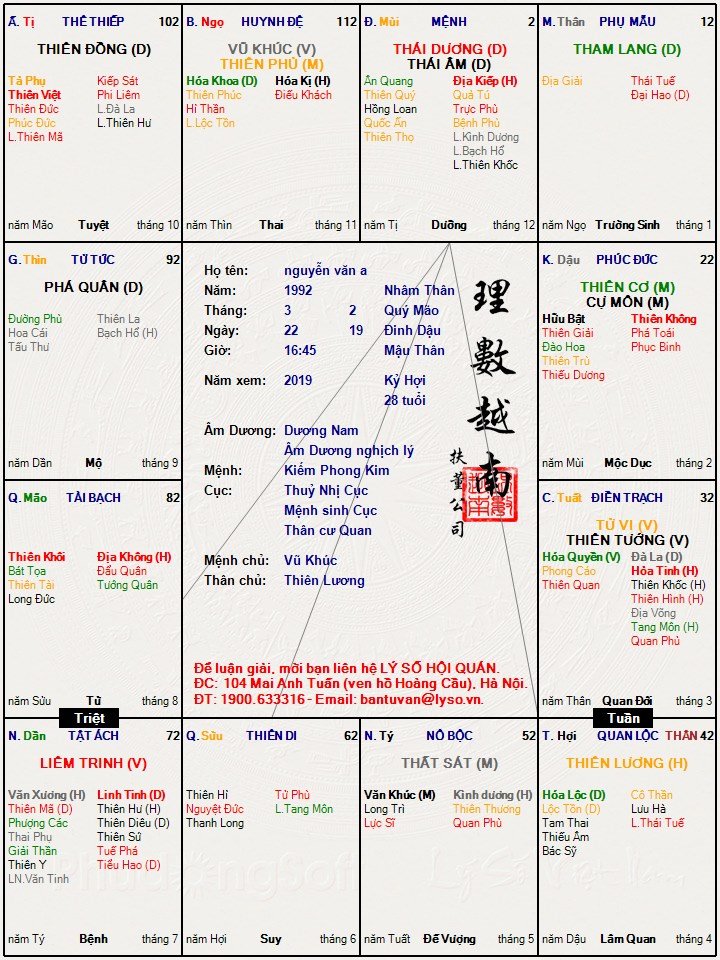 Ấ. Tị THÊ THIẾP 102
THIÊN ĐỒNG (D)
Tả Phụ Kiếp Sát
Thiên Việt Phi Liêm
Thiên Đức L.Đà La
Phúc Đức L.Thiên Hư
L.Thiên Mã
năm Mão Tuyệt tháng 10
B. Ngọ HUYNH ĐỆ 112
VŨ KHÚC (V)
THIÊN PHỦ (M)
Hóa Khoa (D) Hóa Kị (H)
Thiên Phúc Điếu Khách
Hỉ Thần
L.Lộc Tồn
năm Thìn Thai tháng 11
Đ. Mùi MỆNH 2
THÁI DƯƠNG (D)
THÁI ÂM (D)
Ân Quang Địa Kiếp (H)
Thiên Quý Quả Tú
Hồng Loan Trực Phù
Quốc Ấn Bệnh Phù
Thiên Thọ L.Kình Dương
L.Bạch Hổ
L.Thiên Khốc
năm Tị Dưỡng tháng 12
M. Thân PHỤ MẪU 12
THAM LANG (D)
Địa Giải Thái Tuế
Đại Hao (D)
năm Ngọ Trường Sinh tháng 1
G. Thìn TỬ TỨC 92
PHÁ QUÂN (D)
Đường Phù Thiên La
Hoa Cái Bạch Hổ (H)
Tấu Thư
năm Dần Mộ tháng 9
Họ tên: nguyễn văn a
Năm: 1992 Nhâm Thân
Tháng: 3 2 Quý Mão
Ngày: 22 19 Đinh Dậu
Giờ: 16:45 Mậu Thân
Năm xem: 2019 Kỷ Hợi
28 tuổi
Âm Dương: Dương Nam
Âm Dương nghịch lý
Mệnh: Kiếm Phong Kim
Cục: Thuỷ Nhị Cục
Mệnh sinh Cục
Thân cư Quan
Mệnh chủ: Vũ Khúc
Thân chủ: Thiên Lương
理數越南
扶董公司
Để luận giải, mời bạn liên hệ LÝ SỐ HỘI QUÁN.
ĐC: 104 Mai Anh Tuấn (ven hồ Hoàng Cầu), Hà Nội.
ĐT: 1900.633316 - Email: bantuvan@lyso.vn.
K. Dậu PHÚC ĐỨC 22
THIÊN CƠ (M)
CỰ MÔN (M)
Hữu Bật Thiên Không
Thiên Giải Phá Toái
Đào Hoa Phục Binh
Thiên Trù
Thiếu Dương
năm Mùi Mộc Dục tháng 2
Q. Mão TÀI BẠCH 82
Thiên Khôi Địa Không (H)
Bát Tọa Đẩu Quân
Thiên Tài Tướng Quân
Long Đức
năm Sửu Tử tháng 8
C. Tuất ĐIỀN TRẠCH 32
TỬ VI (V)
THIÊN TƯỚNG (V)
Hóa Quyền (V) Đà La (D)
Phong Cáo Hỏa Tinh (H)
Thiên Quan Thiên Khốc (H)
Thiên Hình (H)
Địa Võng
Tang Môn (H)
Quan Phủ
năm Thân Quan Đới tháng 3
Triệt
Tuần
N. Dần TẬT ÁCH 72
LIÊM TRINH (V)
Văn Xương (H) Linh Tinh (D)
Thiên Mã (D) Thiên Hư (H)
Phượng Các Thiên Diêu (D)
Thai Phụ Thiên Sứ
Giải Thần Tuế Phá
Thiên Y Tiểu Hao (D)
LN.Văn Tinh
năm Tý Bệnh tháng 7
Q. Sửu THIÊN DI 62
Thiên Hỉ Tử Phù
Nguyệt Đức L.Tang Môn
Thanh Long
năm Hợi Suy tháng 6
N. Tý NÔ BỘC 52
THẤT SÁT (M)
Văn Khúc (M) Kình dương (H)
Long Trì Thiên Thương
Lực Sĩ Quan Phù
năm Tuất Đế Vượng tháng 5
T. Hợi QUAN LỘC THÂN 42
THIÊN LƯƠNG (H)
Hóa Lộc (D) Cô Thần
Lộc Tồn (D) Lưu Hà
Tam Thai L.Thái Tuế
Thiếu Âm
Bác Sỹ
năm Dậu Lâm Quan tháng 4